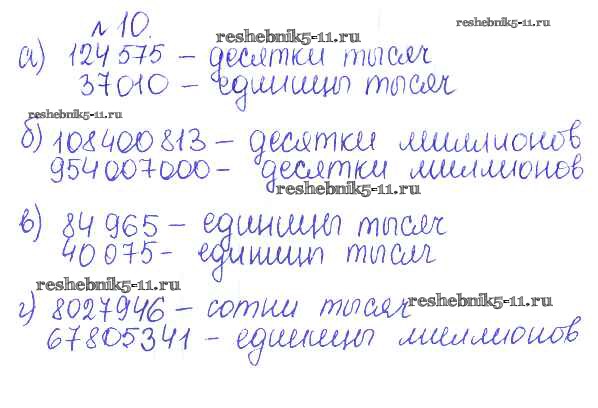 № 10.
reshebnik5-11.ru
reshebnik5-11.ru
а) 124 575 – десятки тысяч
37010 – единицы тысяч
reshebnik5-11.ru
б) 108400813 – десятки миллионов
954007000 – десятки миллионов
reshebnik5-11.ru
в) 84 965 – единицы тысяч
40 075 – единицы тысяч
reshebnik5-11.ru
г) 8027946 – сотни тысяч
reshebnik5-11.ru
67805341 – единицы миллионов